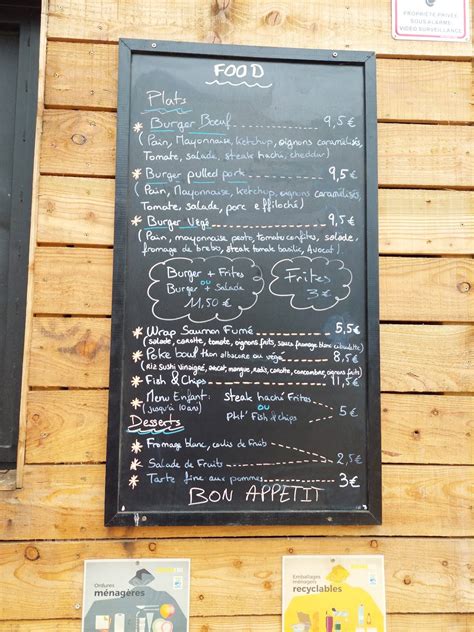 PROPRIÉTÉ PRIVÉE
SOUS ALARME
VIDÉO SURVEILLANCE
FOOD
Plats
* Burger Bœuf 9,5 €
(Pain, Mayonnaise, Ketchup, oignons caramélisés,
Tomate, salade, steak haché, cheddar)
* Burger pulled pork 9,5 €
(Pain, Mayonnaise, Ketchup, oignons caramélisés,
Tomate, salade, porc effiloché)
* Burger Végé 9,5 €
(Pain, mayonnaise pesto, tomate confites, salade,
fromage de brebis, steak tomate basilic, Avocat)
Burger + Frites
ou
Burger + Salade
11,50 €
Frites
3 €
* Wrap Saumon Fumé 5,5 €
(salade, carotte, tomate, oignons frits, sauce fromage blanc ciboulette)
* Poke bowl thon albacore ou végé 8,5 €
(Riz sushi vinaigré, avocat, mangue, radis, carotte, concombre, oignons frits)
* Fish & Chips 11,5 €
* Menu Enfant: steak haché Frites
(jusqu'à 10 ans) ou 5 €
Ptit Fish & chips
Desserts
* Fromage blanc, coulis de fruits
* Salade de Fruits 2,5 €
* Tarte fine aux pommes 3 €
BON APPETIT
Ordures
ménagères
Emballages
ménagers
recyclables